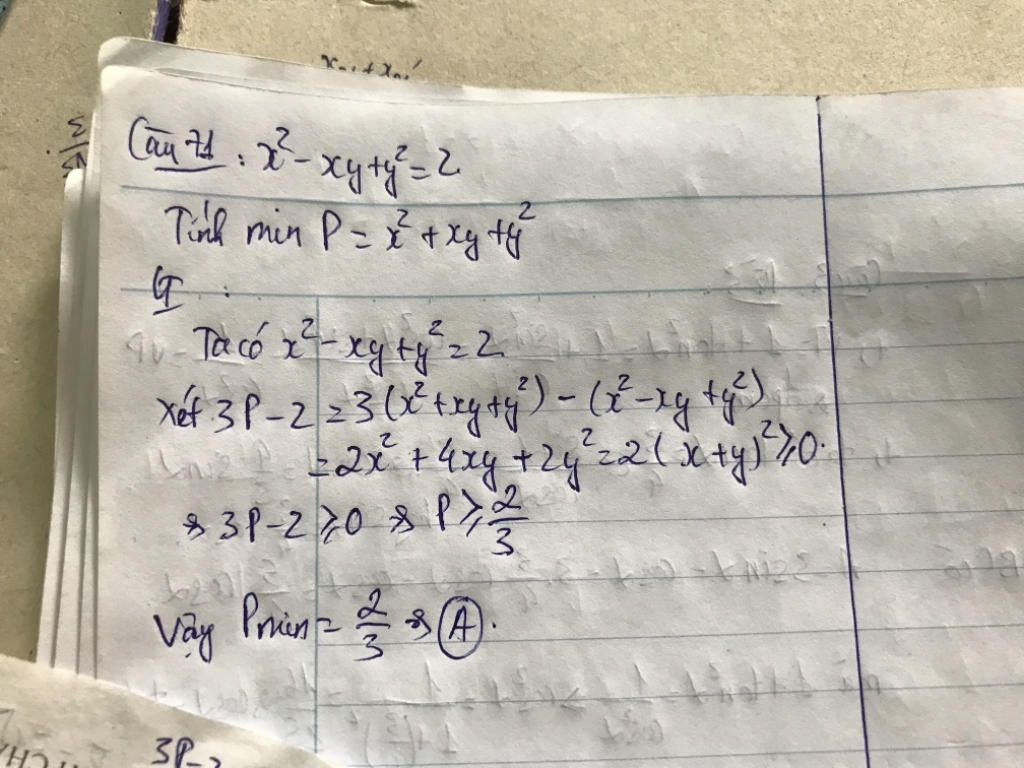 Câu 71: x² - xy + y² = 2
Tính min P = x² + xy + y²
G
Ta có x² - xy + y² = 2
Xét 3P - 2 = 3(x² + xy + y²) - (x² - xy + y²)
= 2x² + 4xy + 2y² = 2(x+y)² ≥ 0.
⇒ 3P - 2 ≥ 0 ⇒ P ≥ 2/3
Vậy Pmin = 2/3 ⇒ Ⓐ.
3P-2